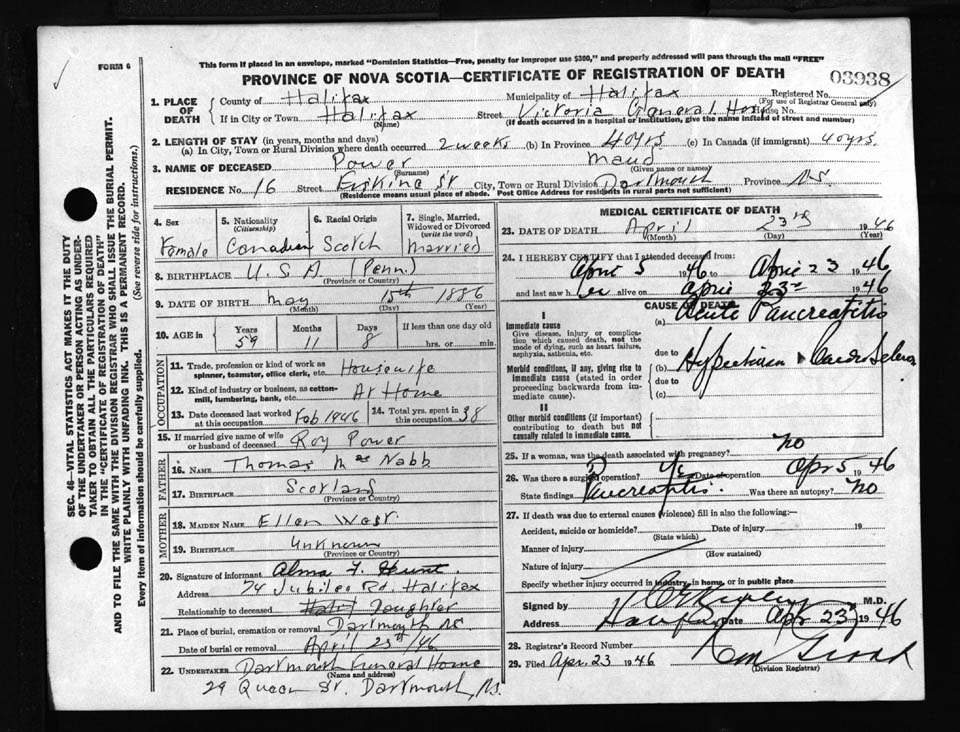 This form if placed in an envelope, marked "Dominion Statistics—Free, penalty for improper use $300," and properly addressed will pass through the mail "FREE"
FORM 6
PROVINCE OF NOVA SCOTIA—CERTIFICATE OF REGISTRATION OF DEATH
03938
SEC. 46—VITAL STATISTICS ACT MAKES IT THE DUTY
OF THE UNDERTAKER OR PERSON ACTING AS UNDER-
TAKER TO OBTAIN ALL THE PARTICULARS REQUIRED
IN THE "CERTIFICATE OF REGISTRATION OF DEATH"
AND TO FILE THE SAME WITH THE DIVISION REGISTRAR WHO SHALL ISSUE THE BURIAL PERMIT.
WRITE PLAINLY WITH UNFADING INK. THIS IS A PERMANENT RECORD.
Every item of information should be carefully supplied. (See reverse side for instructions.)
1. PLACE OF DEATH
County of Halifax Municipality of Halifax Registered No.
(For use of Registrar General only)
If in City or Town Halifax Street Victoria General Hosp House No.
(Name) (If death occurred in a hospital or institution, give the name instead of street and number)
2. LENGTH OF STAY (in years, months and days)
(a) In City, Town or Rural Division where death occurred 2 weeks (b) In Province 40 yrs (c) In Canada (if immigrant) 40 yrs.
3. NAME OF DECEASED Power Maud
(Surname) (Given name or names)
RESIDENCE No. 16 Street Erskine St City, Town or Rural Division Dartmouth Province N.S.
(Residence means usual place of abode. Post Office Address for residents in rural parts not sufficient)
4. Sex 5. Nationality (Citizenship) 6. Racial Origin 7. Single, Married, Widowed or Divorced (write the word)
Female Canadian Scotch Married
8. BIRTHPLACE U.S.A (Penn.)
(Province or Country)
9. DATE OF BIRTH May 15th 1886
(Month) (Day) (Year)
10. AGE in Years Months Days If less than one day old
59 11 8 hrs. or min.
OCCUPATION
11. Trade, profession or kind of work as spinner, teamster, office clerk, etc. Housewife
12. Kind of industry or business, as cotton-mill, lumbering, bank, etc. At Home
13. Date deceased last worked at this occupation Feb 1946 14. Total yrs. spent in this occupation 38
15. If married give name of wife or husband of deceased Roy Power
FATHER
16. NAME Thomas McNabb
17. BIRTHPLACE Scotland
(Province or Country)
MOTHER
18. MAIDEN NAME Ellen West.
19. BIRTHPLACE Unknown
(Province or Country)
20. Signature of informant Alma F. Hunt.
Address 74 Jubilee Rd. Halifax
Relationship to deceased Daughter
21. Place of burial, cremation or removal Dartmouth N.S.
Date of burial or removal April 25th/46
22. UNDERTAKER Dartmouth Funeral Home
(Name and address)
29 Queen St. Dartmouth, N.S.
MEDICAL CERTIFICATE OF DEATH
23. DATE OF DEATH April 23rd 1946
(Month) (Day) (Year)
24. I HEREBY CERTIFY that I attended deceased from:
April 5 1946 to April 23 1946
and last saw her alive on April 23rd 1946
CAUSE OF DEATH
I
Immediate cause
Give disease, injury or complication which caused death, not the mode of dying, such as heart failure, asphyxia, asthenia, etc.
(a) Acute Pancreatitis
due to
Morbid conditions, if any, giving rise to immediate cause (stated in order proceeding backwards from immediate cause).
(b)
due to
(c)
II
Other morbid conditions (if important) contributing to death but not causally related to immediate cause.
25. If a woman, was the death associated with pregnancy? No
26. Was there a surgical operation? Yes Date of operation Apr 5 1946
State findings Pancreatitis. Was there an autopsy? No
27. If death was due to external causes (violence) fill in also the following:—
Accident, suicide or homicide? Date of injury 19
(State which)
Manner of injury
(How sustained)
Nature of injury
Specify whether injury occurred in industry, in home, or in public place
Signed by M.D.
Address Halifax Date Apr 23 1946
28. Registrar's Record Number
29. Filed Apr. 23 1946
(Division Registrar)